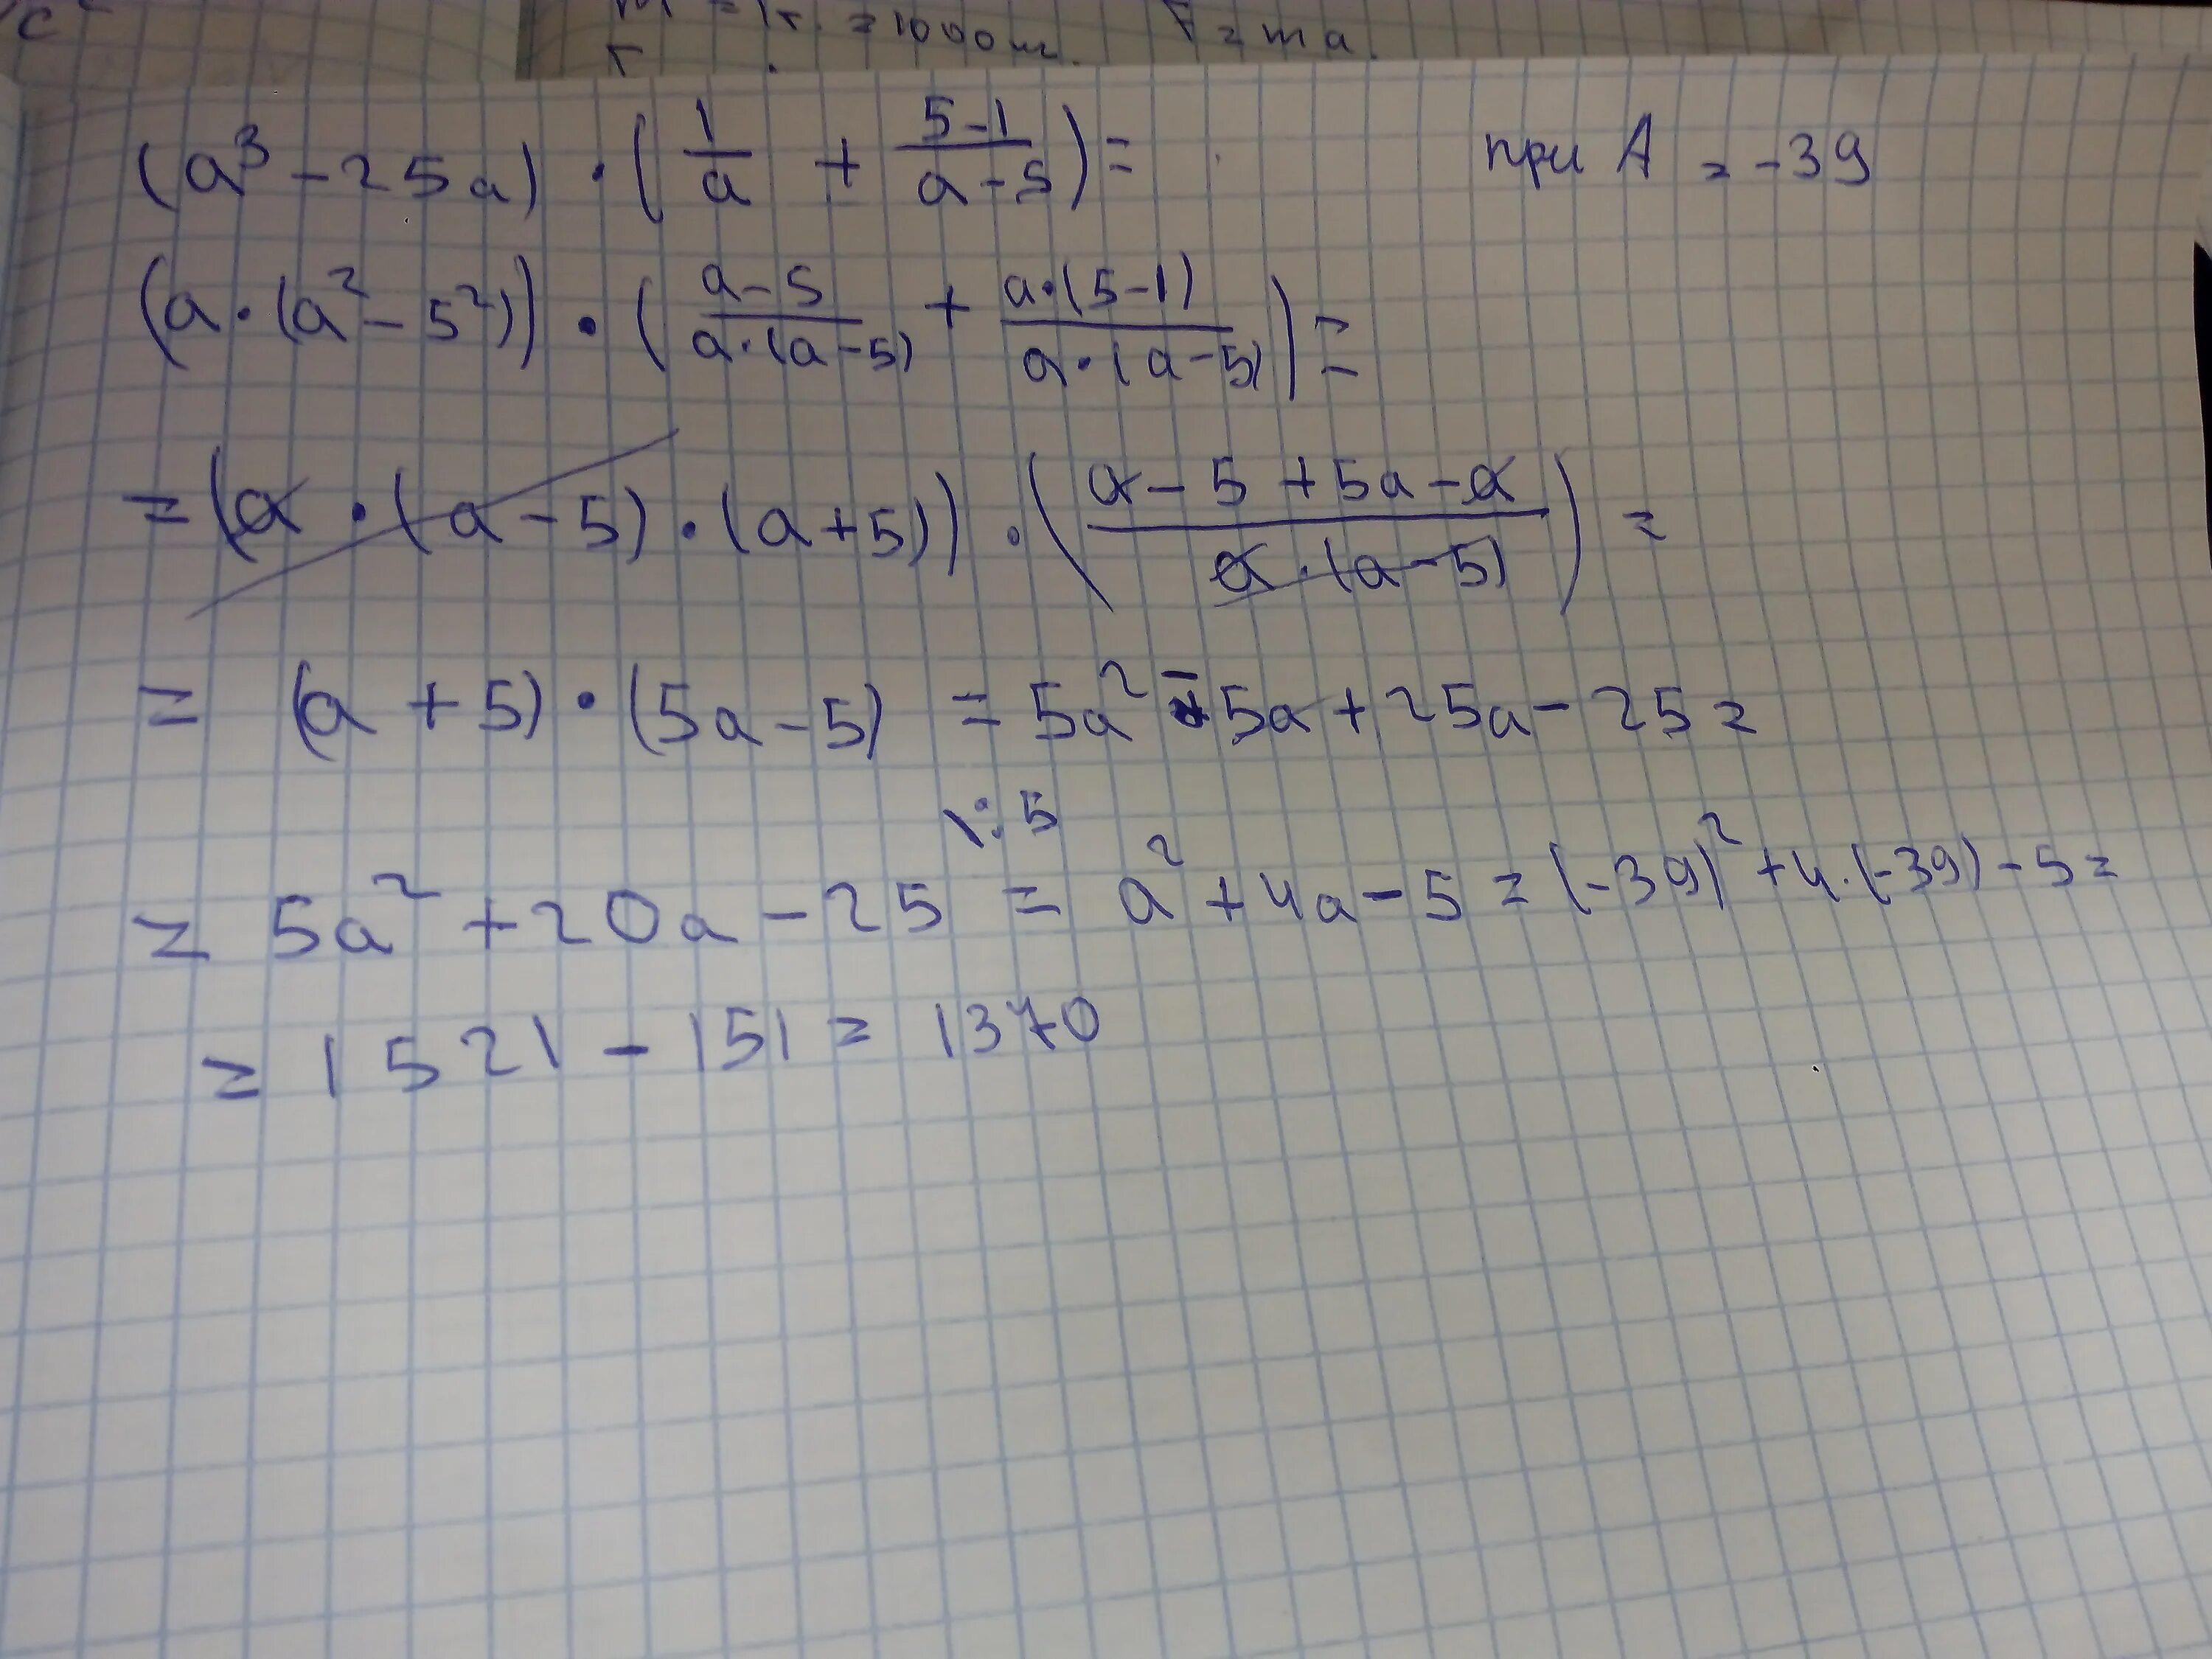 c
m = 1т. = 1000 кг. F = ma.
(a³ - 25a) · (1/a + (5-1)/(a-5)) = при A = -39
(a·(a² - 5²)) · ((a-5)/(a·(a-5)) + (a·(5-1))/(a·(a-5))) =
= (a · (a-5) · (a+5)) · ((a - 5 + 5a - a)/(a·(a-5))) =
= (a + 5) · (5a - 5) = 5a² - 5a + 25a - 25 =
\:5
= 5a² + 20a - 25 = a² + 4a - 5 = (-39)² + 4·(-39) - 5 =
= 1521 - 151 = 1370